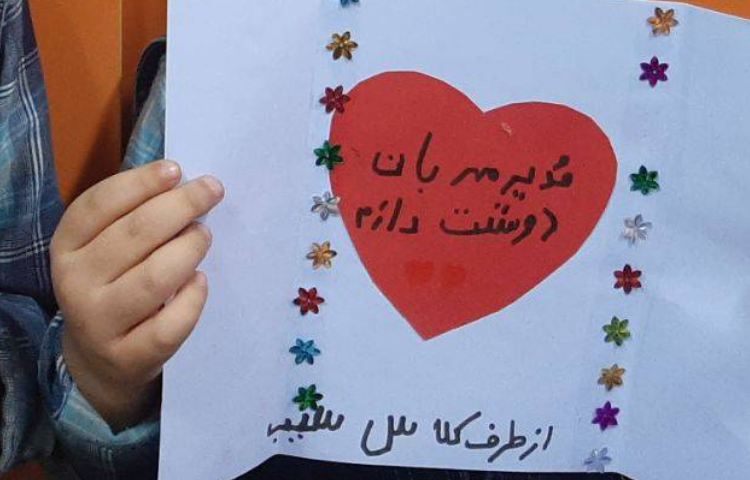 مُدیر مهربان
دوستت دارم
از طرف کلاس سیب